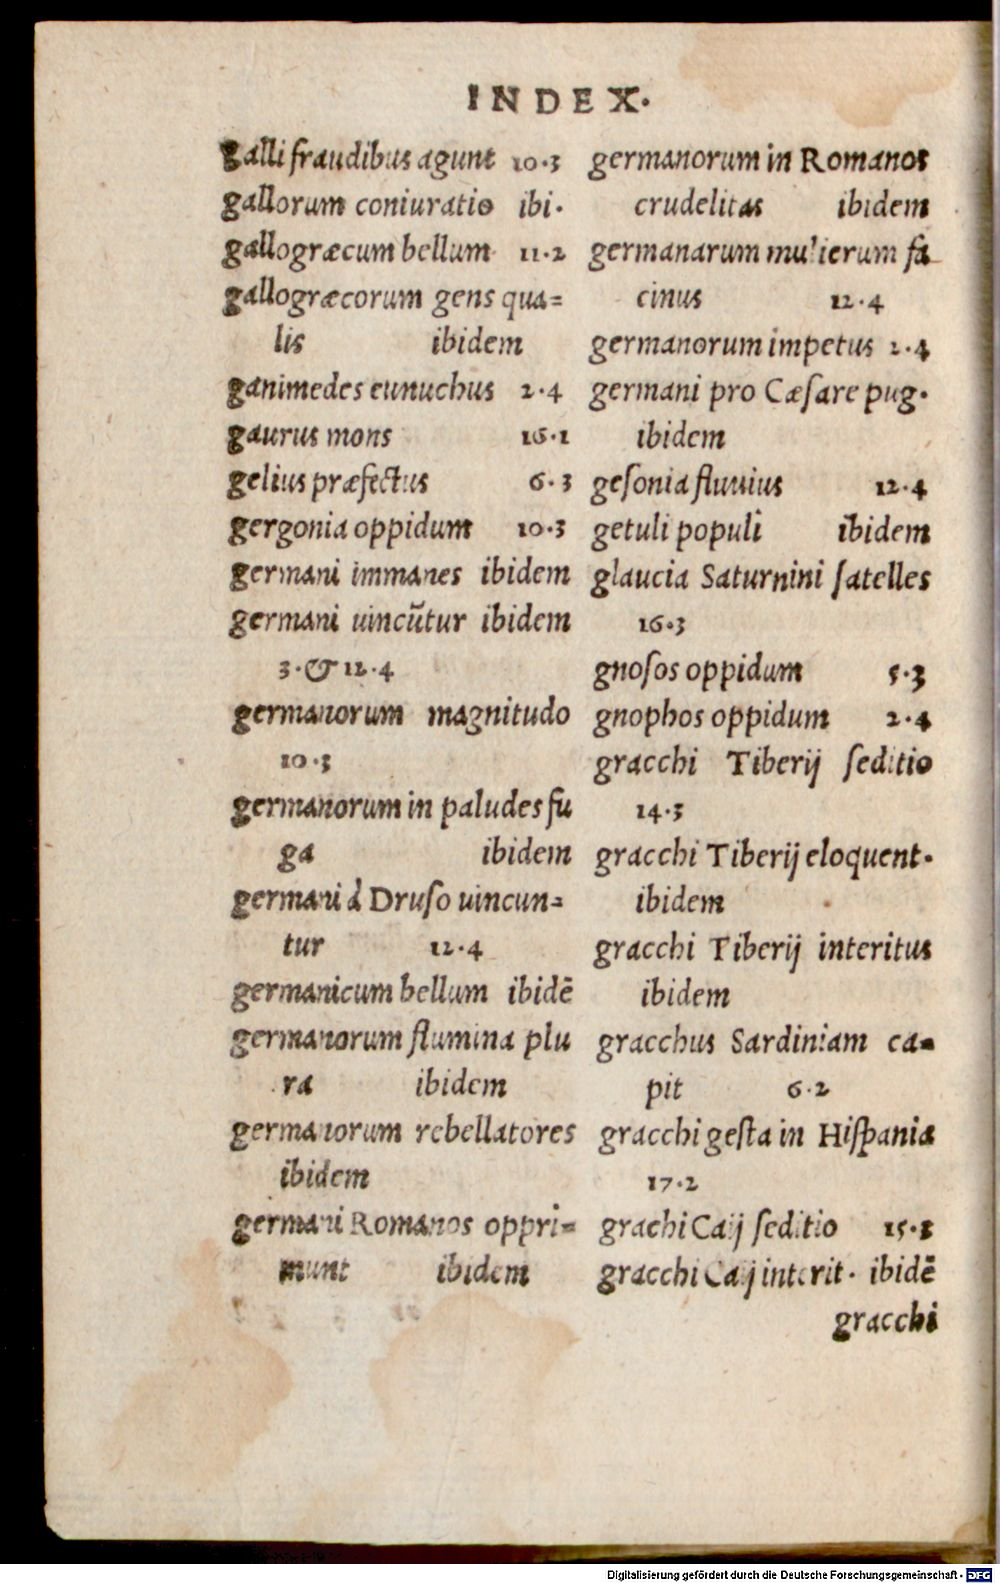 INDEX.
galli fraudibus agunt 10.3
gallorum coniuratio ibi.
gallogræcum bellum 11.2
gallogræcorum gens qua=
lis ibidem
ganimedes eunuchus 2.4
gaurus mons 16.1
gelius præfectus 6.3
gergonia oppidum 10.3
germani immanes ibidem
germani uincūtur ibidem
3.& 12.4
germanorum magnitudo
10.3
germanorum in paludes fu
ga ibidem
germani à Druso uincun=
tur 12.4
germanicum bellum ibidē
germanorum flumina plu
ra ibidem
germanorum rebellatores
ibidem
germani Romanos oppri=
munt ibidem
germanorum in Romanos
crudelitas ibidem
germanarum mulierum fa
cinus 12.4
germanorum impetus 2.4
germani pro Cæsare pug.
ibidem
gesonia fluuius 12.4
getuli populi ibidem
glaucia Saturnini satelles
16.3
gnosos oppidum 5.3
gnophos oppidum 2.4
gracchi Tiberij seditio
14.3
gracchi Tiberij eloquent.
ibidem
gracchi Tiberij interitus
ibidem
gracchus Sardiniam ca=
pit 6.2
gracchi gesta in Hispania
17.2
grachi Caij seditio
gracchi Caij interit. ibidē
gracchi
Digitalisierung gefördert durch die Deutsche Forschungsgemeinschaft - DFG